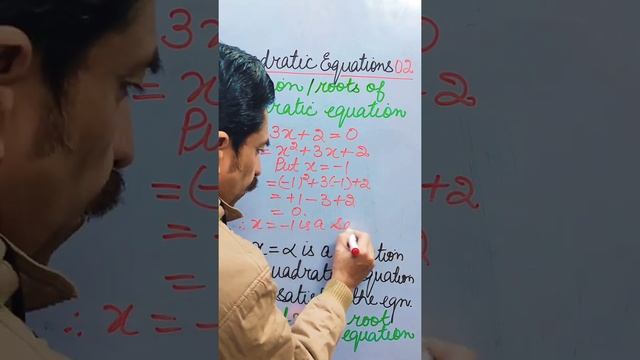 dratic Equations 02
ion / roots of
dratic equation
3x + 2 = 0
= x² + 3x + 2
Put x = -1
= (-1)² + 3(-1) + 2
= +1 - 3 + 2
= 0.
∴ x = -1 is a So
x = α is a
equation
the eqn.
root
equation